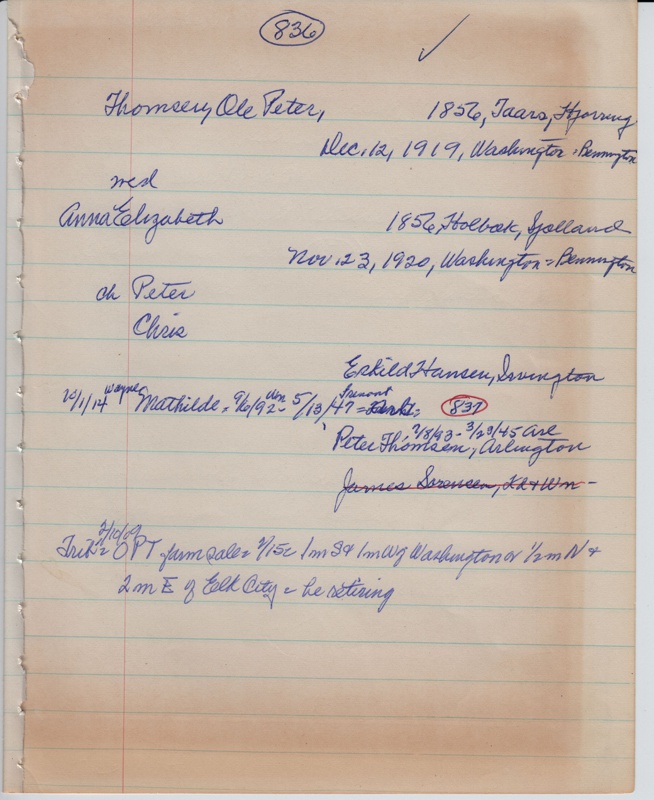 836
Thomsen, Ole Peter, 1856, Taars, Hjorring
Dec. 12, 1919, Washington = Bennington
med
Anna Elizabeth 1856, Holbæk, Sjolland
Nov. 23, 1920, Washington = Bennington
ch Peter
Chris
Eskild Hansen, Irvington
10/1/14 Wayne Mathilde = 9/6/92 - 5/13/47 = Fremont 837
2/8/93 - 3/29/45 Arl
Peter Thomsen, Arlington
James Sorensen, Kr & Wm -
2/10/09
Trib = OPT farm sale = 2/15 1 m S & 1 m W of Washington or 1/2 m N &
2 m E of Elk City = he retiring